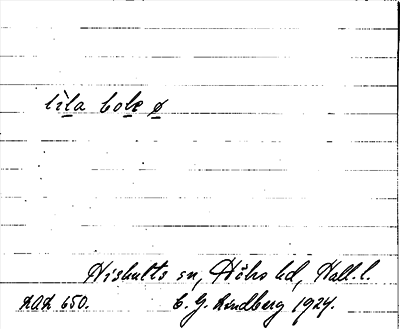 lìla bokɇ ø
Hishults sn, Höks hd, Hall. l.
KAK 650. E. G. Lindberg 1924.